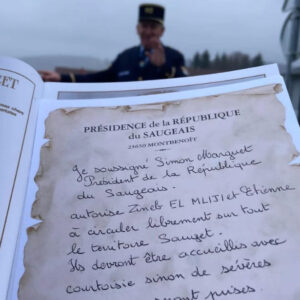 PRÉSIDENCE de la RÉPUBLIQUE
du SAUGEAIS
25650 MONTBENOÎT
Je soussigné Simon Marguet
Président de la République
du Saugeais.
autorise Zineb EL MLIJI et Etienne
à circuler librement sur tout
le territoire Sauget.
Ils devront être accueillis avec
courtoisie sinon de sévères
seront prises.